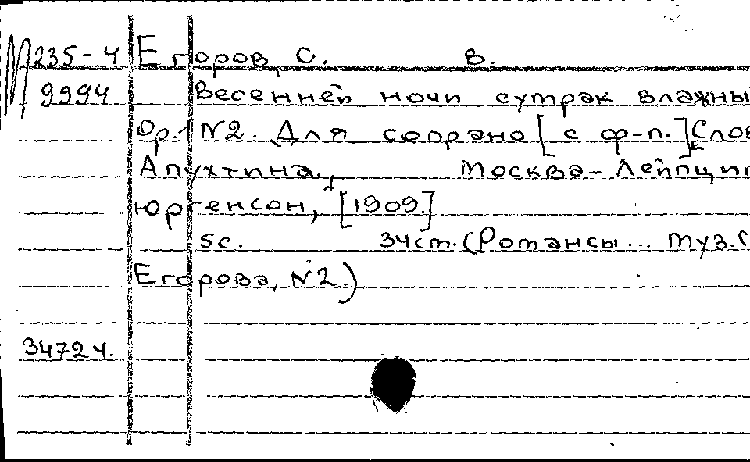 М 235-4 Егоров, С. в.
9994 Весенней ночи сутрак влажны
Ор.1 N2. Для сопрано [с ф-п.] Слов
Апухтина, Москва-Лейпциг
Юргенсон, [1909]
5с. 34см. (Романсы... муз. С
Егорова, N2)
34724.